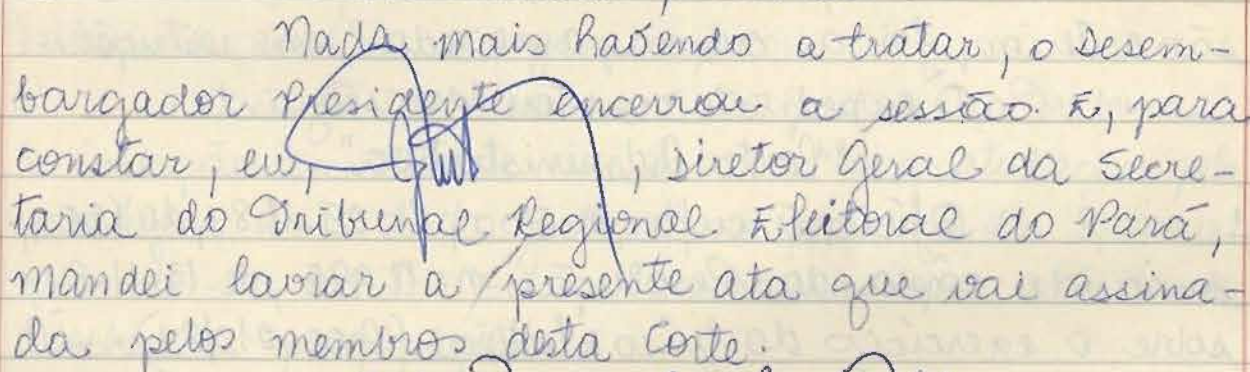 Nada mais havendo a tratar, o Desem-
bargador Presidente encerrou a sessão. E, para
constar, eu, , Diretor Geral da Secre-
taria do Tribunal Regional Eleitoral do Pará,
mandei lavrar a presente ata que vai assina-
da pelos membros desta Corte.